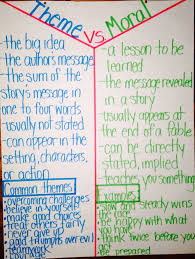 Theme vs Moral
-the big idea
-the authors message
-the sum of the
story's message in
one to four words
-usually not stated
-can appear in the
setting, characters,
or action
Common themes
-overcoming challenges
-believe in yourself
-make good choices
-treat others fairly
-never give up
-good triumphs over evil
-teamwork
-a lesson to be
learned
-the message revealed
in a story
-usually appears at
the end of a fable
-can be directly
stated, implied
-teaches you something
Examples
-slow and steady wins
the race
-be happy with what
you have
-think twice before you
act
-be prepared